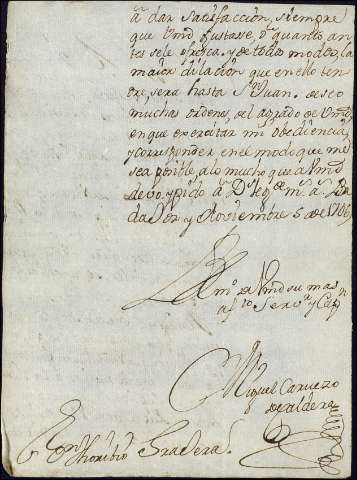 a dar satisfacción, siempre
que Vmd gustasse, o quanto an
tes se le ofresca. y de todos modos, la
maior dilación que en ello ten
dre sera hasta Sn Juan. deseo
muchas ordenes, del agrado de Vmd
en que exercitar mi obediencia
y corresponder en el modo que me
sea posible, a lo mucho que a Vmd
devo, y pido a Ds le gde ms as
y Noviembre 5 de
Bmo de Vmd su mas
afto Servr y Cap
Miguel Caruezo
de Caldera
Don Thoribio Gradera